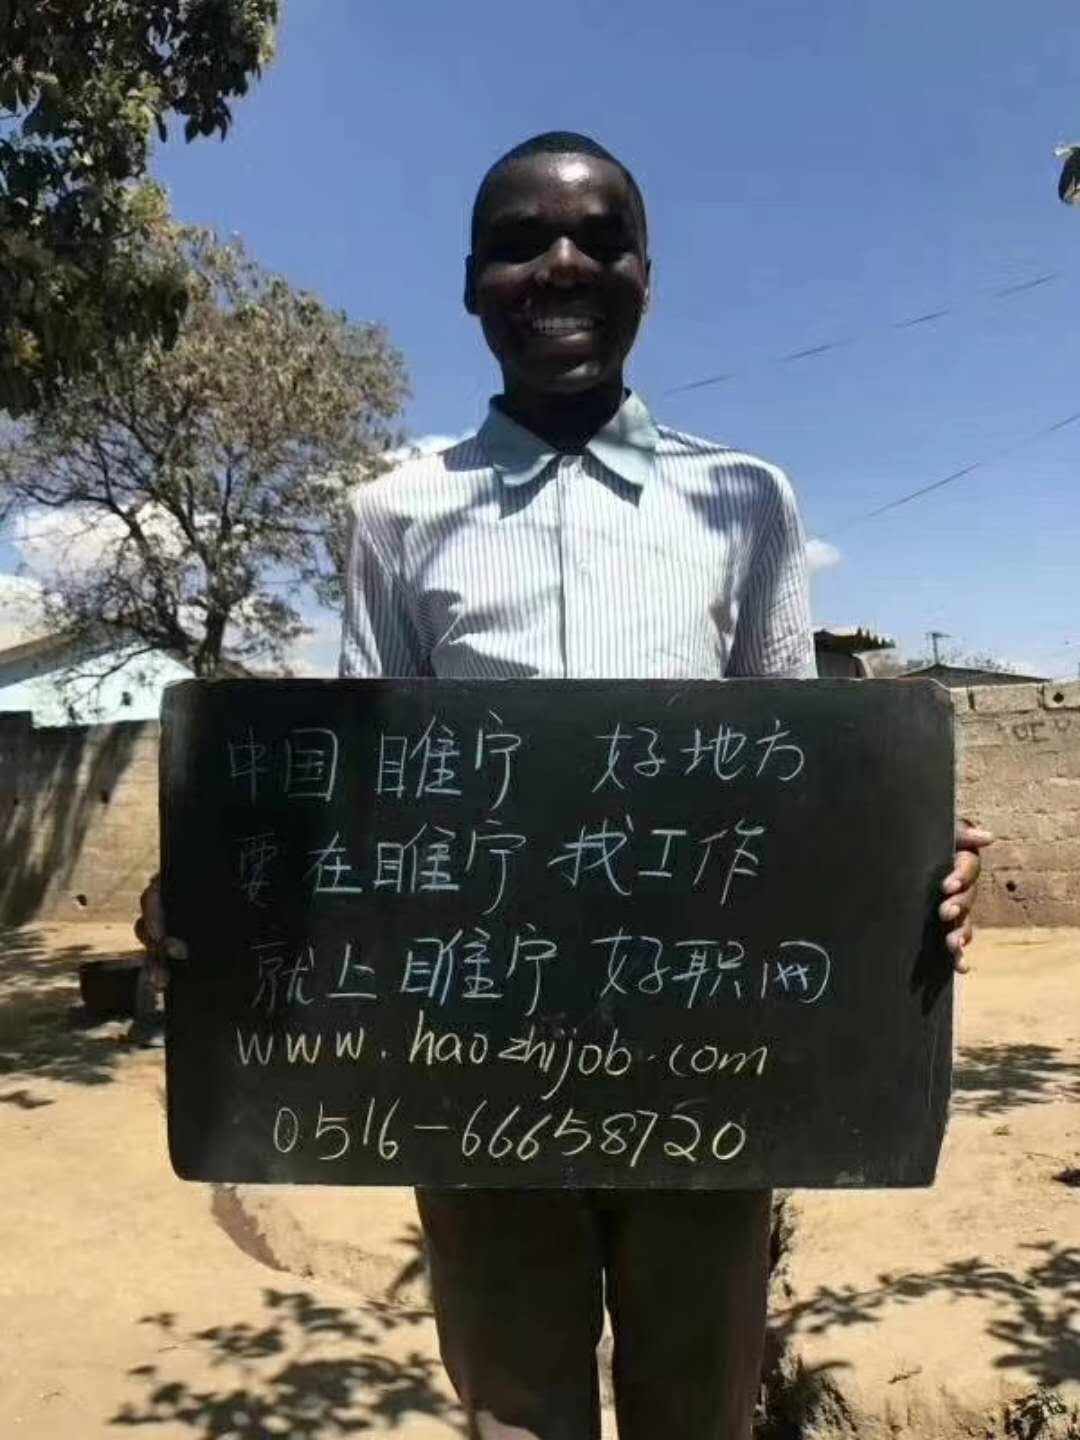 中国 睢宁 好地方
要在睢宁找工作
就上睢宁好职网
www.haozhijob.com
0516-66658720